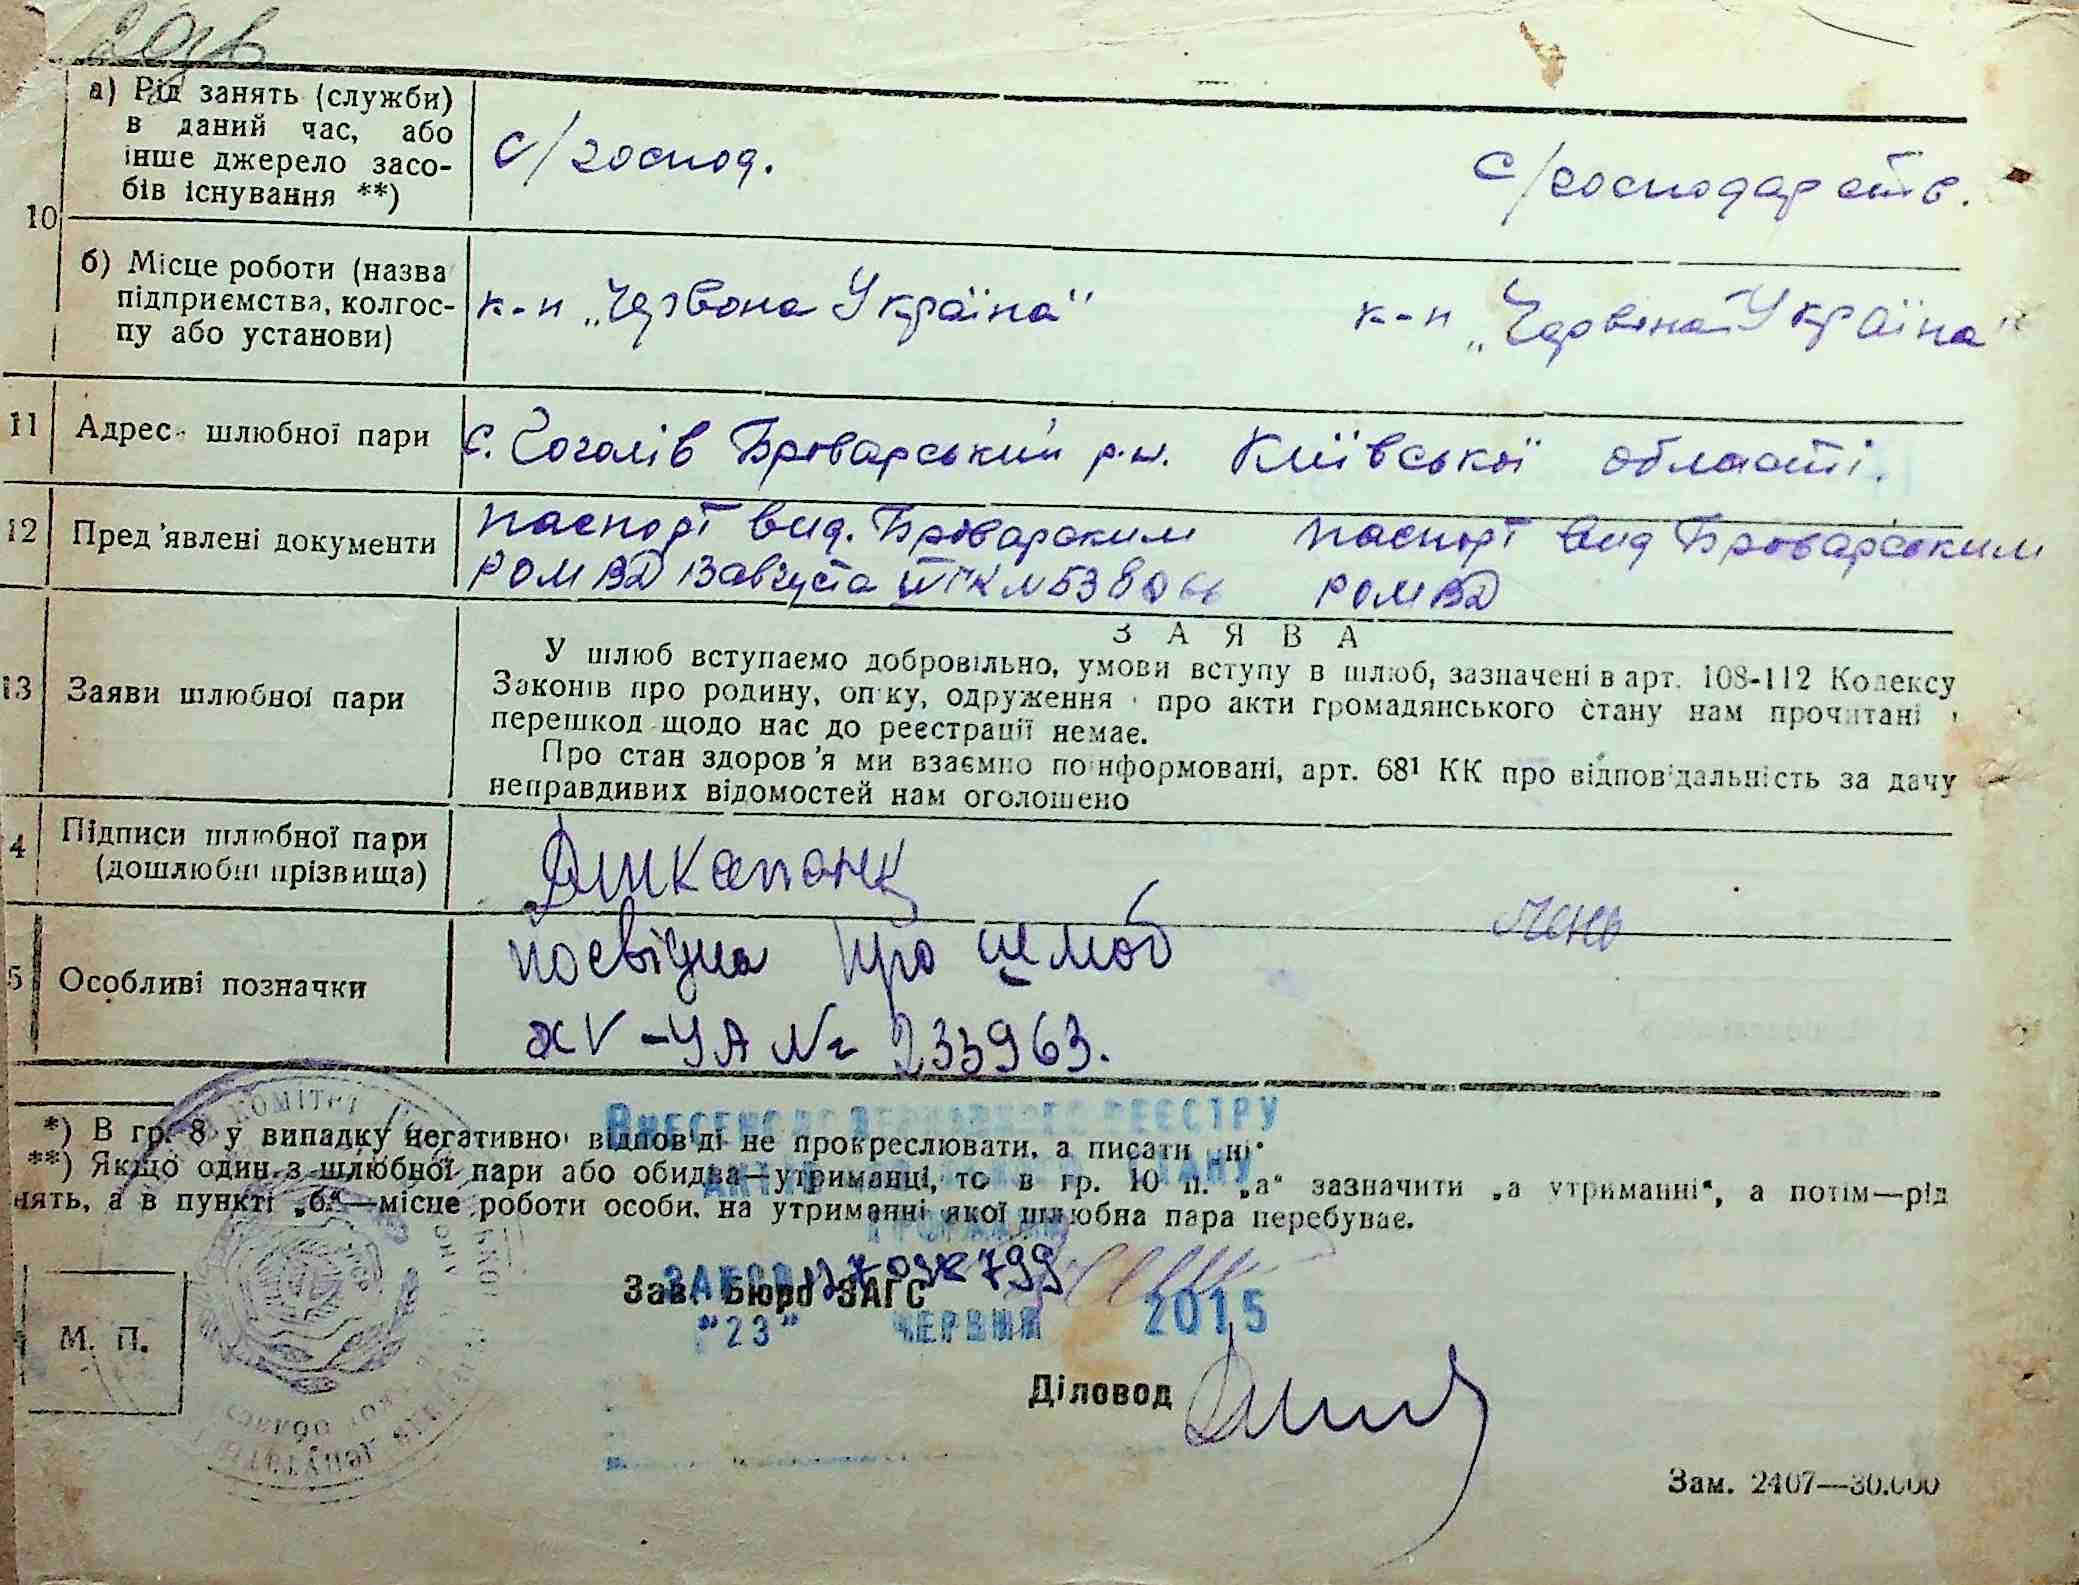 а) Рід занять (служби)
в даний час, або
інше джерело засо-
бів існування **)
с/господ.
с/господарств.
10
б) Місце роботи (назва
підприємства, колгос-
пу або установи)
к-п „Червона Україна"
к-п „Червона Україна"
11 Адрес шлюбної пари
с. Гоголів Броварський р-н. Київської області.
12 Пред'явлені документи
паспорт вид. Броварским паспорт вид Броварським
РОМ ВД 13 августа РОМ ВД
З А Я В А
13 Заяви шлюбної пари
У шлюб вступаємо добровільно, умови вступу в шлюб, зазначені в арт. 108-112 Кодексу
Законів про родину, опіку, одруження і про акти громадянського стану нам прочитані і
перешкод щодо нас до реєстрації немає.
Про стан здоров'я ми взаємно поінформовані, арт. 68¹ КК про відповідальність за дачу
неправдивих відомостей нам оголошено
4 Підписи шлюбної пари
(дошлюбні прізвища)
5 Особливі позначки
посвідка про шлюб
XV-УА № 233963.
*) В гр. 8 у випадку негативної відповіді не прокреслювати, а писати „ні"
**) Якщо один з шлюбної пари або обидва—утриманці, то в гр. 10 п. „а" зазначити „а утриманні", а потім—рід
нять, а в пункті „б"—місце роботи особи, на утриманні якої шлюбна пара перебуває.
Внесено до Державного реєстру
актів стану
громадян
Зав. Бюро ЗАГС
"23" червня 2015
М. П.
Діловод
Зам. 2407—30.000